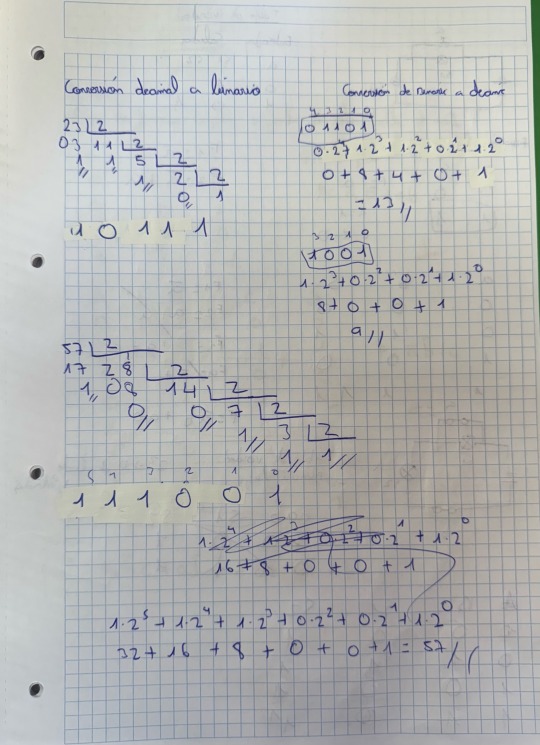 Conversión decimal a binario
23 2
03 11 2
1 1 5 2
1 2 2
0 1
1 0 1 1 1
Conversión de Binario a decimal
4 3 2 1 0
0 1 1 0 1
0·2⁴ 1·2³ + 1·2² + 0·2¹ + 1·2⁰
0 + 8 + 4 + 0 + 1
= 13
3 2 1 0
1 0 0 1
1·2³ + 0·2² + 0·2¹ + 1·2⁰
8 + 0 + 0 + 1
9
57 2
17 28 2
1 08 14 2
0 0 7 2
1 3 2
1 1
5 4 3 2 1 0
1 1 1 0 0 1
1·2⁴ + 1·2³ + 0·2² + 0·2¹ + 1·2⁰
16 + 8 + 0 + 0 + 1
1·2⁵ + 1·2⁴ + 1·2³ + 0·2² + 0·2¹ + 1·2⁰
32 + 16 + 8 + 0 + 0 + 1 = 57